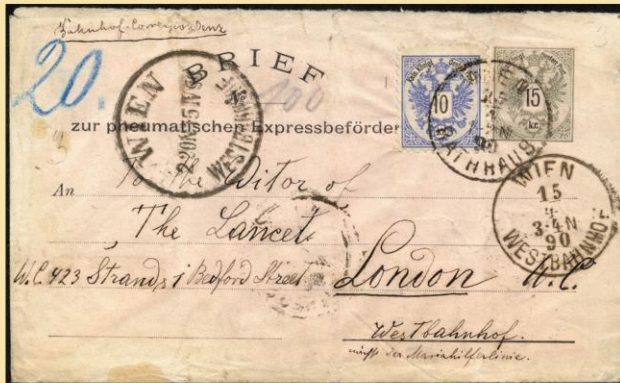 Bahnhof-Correspondenz
20.
BRIEF
100
zur pneumatischen Expressbeförder
10
15
kr.
WIEN
WESTBAHNHOF
WIEN
RATHHAUS
90
WIEN
15
3-4N
90
WESTBAHNHOF
An To the Editor of
The Lancet
W.C. 423 Strand, 1 Bedford Street London W.C.
Westbahnhof.
nächst der Mariahilferlinie.